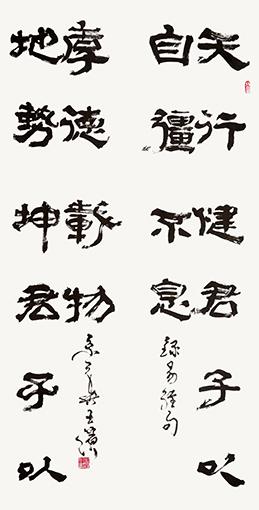 天行健君子以
自彊不息
錄易經句
地勢坤君子以
厚德載物